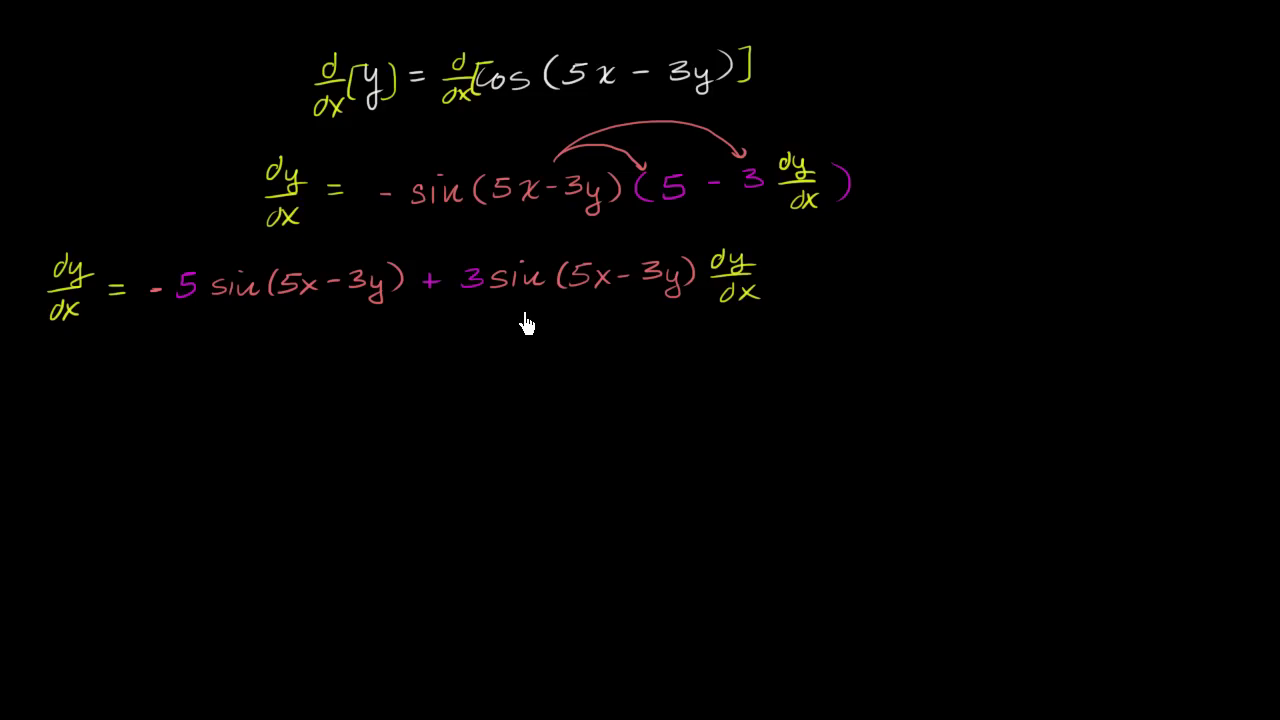 d/dx [y] = d/dx [cos (5x - 3y)]
dy/dx = - sin (5x - 3y) (5 - 3 dy/dx)
dy/dx = - 5 sin (5x - 3y) + 3 sin (5x - 3y) dy/dx